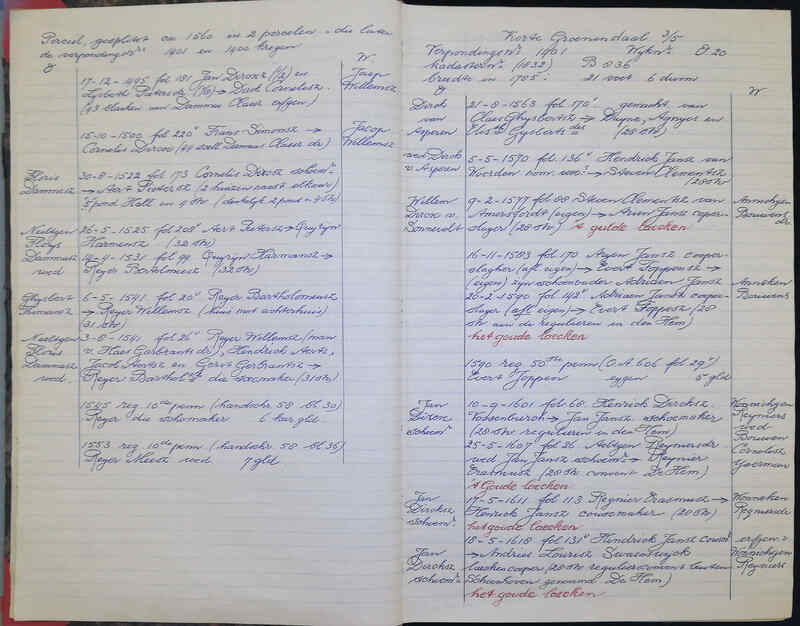 Perceel, gesplitst ca 1560 in 2 percelen - die later
de verpondingsnrs 1401 en 1400 kregen
O
W.
17-12-1495 fol 181 Jan Dircxz (½) en
Lysbeth Pieters
Dirck Cornelisz.
Jacop
Willemsz
15-10-1500 fol 220v Frans Simonsz →
Cornelis Dircxz
Jacop
Willemsz
Floris
Dammasz
30-8-1522 fol 173 Cornelis Dircxsz schoenmr
→ Aert Pietersz (2 huizen naast elkaar)
Neeltgen
Floys
Dammasz
wed
26-5-1525 fol 208v Aert Pietersz → Quyryn
Harmensz (32 st)
14-4-1531 fol 99 Quyryn Harmansz →
Reyer Bartelmeusz (32 st)
Ghysbert
Thimansz
6-5-1541 fol 20v Reyer Bartholomeusz
→ Reyer Willemsz (huis met achterhuis)
(31 st)
Neeltgen
Floris
Dammasz
wed.
3-8-1541 fol 26v Reyer Willemsz (man
v. Haes Gerbrants dr), Hendrick Aertz,
Jacob Aertsz en Gerrt Gerbrantsz →
Reyer Bartholsz die scoemaker (31 st)
1545 reg 10de penn (handschr 58 bl 30)
Reyer die schomaker 6 kar gld.
1553 reg. 10de penn. (handschr 58 bl 36)
Reyer Meesz wed 7 gld
Korte Groenendaal 3/5
Verpondingsnr 1401 Wyknr O 20
kadasternr (1832) B 836
breedte in 1705: 21 voet 6 duim
O
W
Dirck
van
Asperen
21-8-1563 fol 170v gemacht. van
Claes Ghysbertsz → Wayne, Agnyes en
Elisabt Gysberts drs (28 st)
wed Dirck
v Asperen
5-5-1570 fol. 136v Hendrick Jansz van
Woerden nom. uxo: → Steven Clementsz
(28 st)
Willem
Dircx v.
9-2-1577 fol 88 Steven Clementsz van
Amersfordt (eigen) → Arien Jansz coper-
slager (28 st) 't gulde laecken
Annichgen
Bouwens
dr.
16-11-1583 fol 170 Aryen Jansz coper
slagher (aft eigen) → Evert Foppensz →
(eigen) zyn schoonvader Adriaen Jansz
26-2-1590 fol 142v Adriaen Jansz coper
slager (aft eigen) → Evert Foppesz (28
st aan de regulieren in den Hem)
het goude laecken
Anneken
Bouwens
1590 reg 50ste penn (O.A. 606 fol 29v)
Evert Foppen eygen 5 gld
Jan
Dircx
schoenmr
10-9-1601 fol 66 Henrick Dircksz
→ Jan Jansz schoemaker
(28 st regulieren in de Hem)
25-5-1607 fol 26 Aeltgen Reyniersdr
wed Jan Jansz schoenmr → Reynier
Erasmusz (28 st convent De Hem)
't Goude laecken
Wennichgen
Reyniers
wed
Bouwen
Cornelisz
Jan
Dircksz
schoenmr
17-5-1611 fol 113 Regnier Erasmusz →
Henrick Jansz cousemaker (28 st)
het goude laecken
Wenneken
Regniersdr
18-5-1618 fol 131v Hendrick Jansz
→ Andries Louwesz Swaenswyck
laeckencoper (28 st regulieren convent buiten
Schoonhoven genaamd De Hem)
het goude laecken
Jan
Dircksz
schoenmr
erfgen. v
Wennichgen
Reyniers